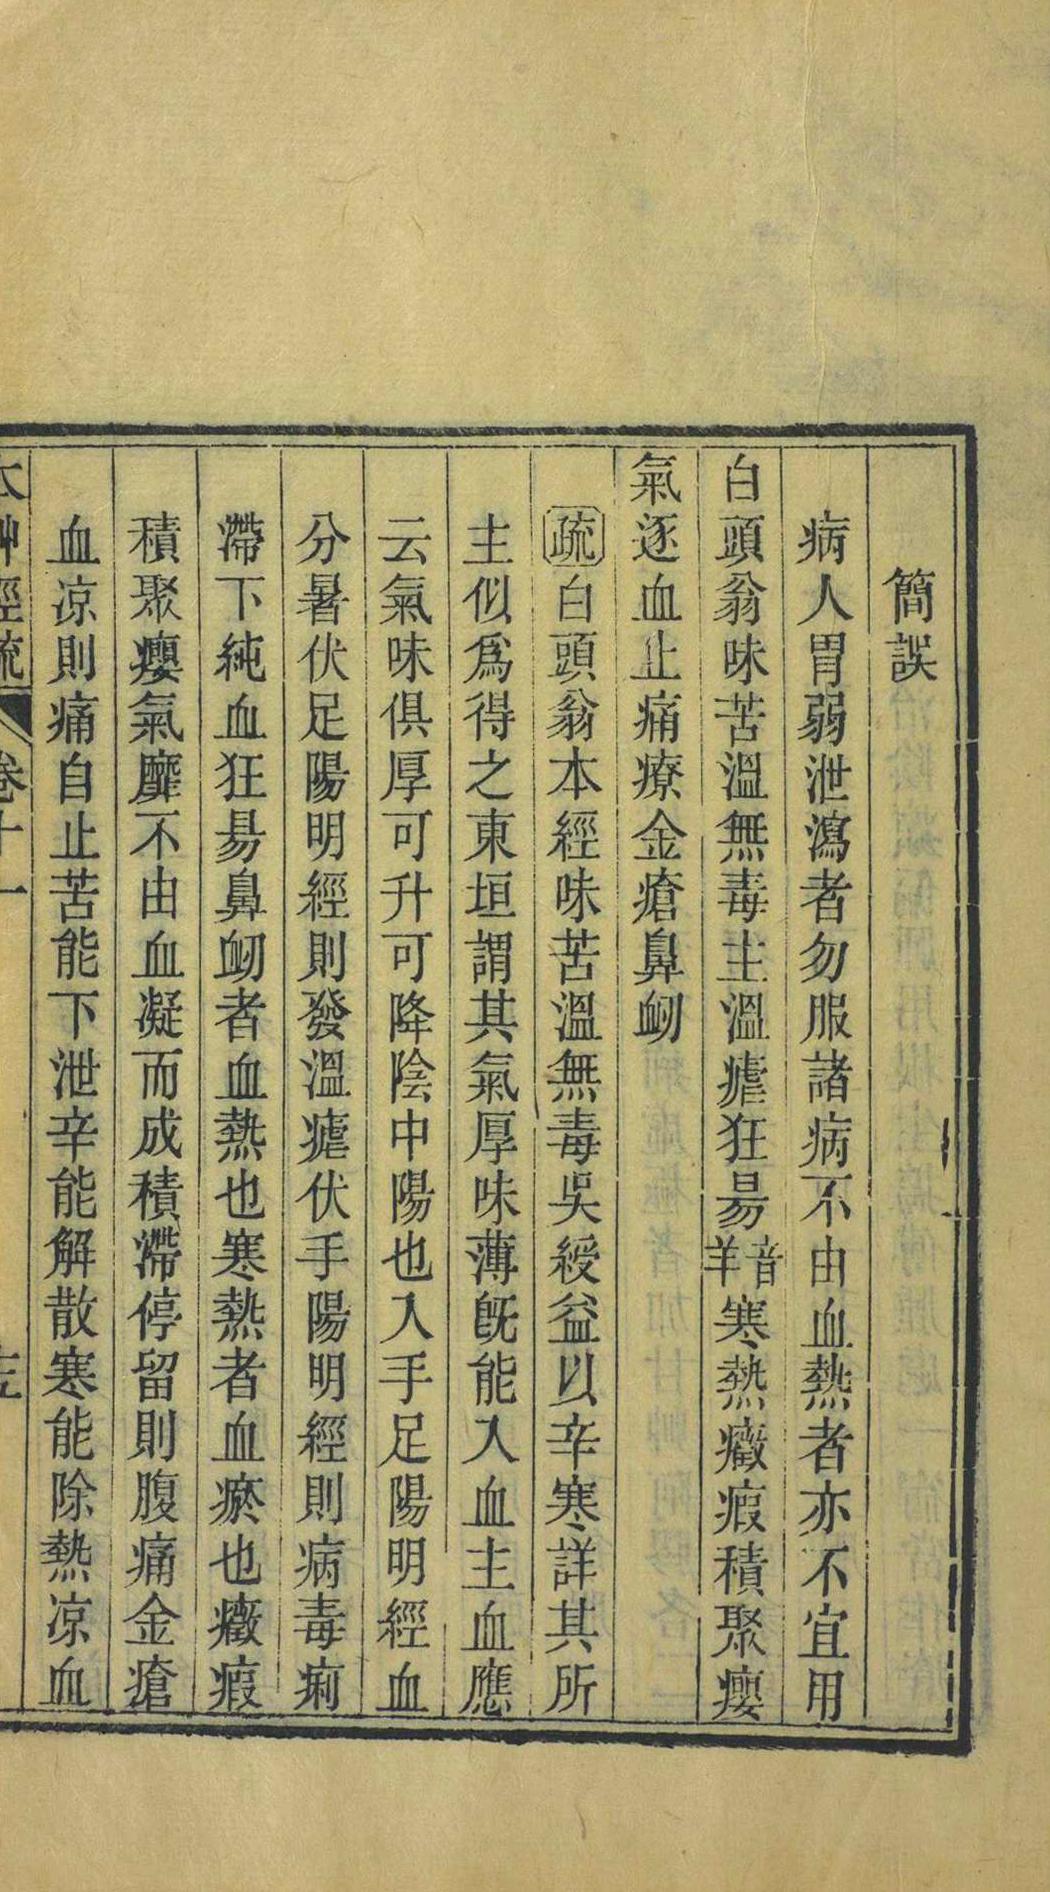 簡誤
病人胃弱泄瀉者勿服諸病不由血熱者亦不宜用
白頭翁味苦溫無毒主溫瘧狂昜音羊寒熱癥瘕積聚癭
氣逐血止痛療金瘡鼻衂
疏白頭翁本經味苦溫無毒吳綬益以辛寒詳其所
主似爲得之東垣謂其氣厚味薄旣能入血主血應
云氣味俱厚可升可降陰中陽也入手足陽明經血
分暑伏足陽明經則發溫瘧伏手陽明經則病毒痢
滯下純血狂昜鼻衂者血熱也寒熱者血瘀也癥瘕
積聚癭氣靡不由血凝而成積滯停留則腹痛金瘡
血凉則痛自止苦能下泄辛能解散寒能除熱凉血
卷十一